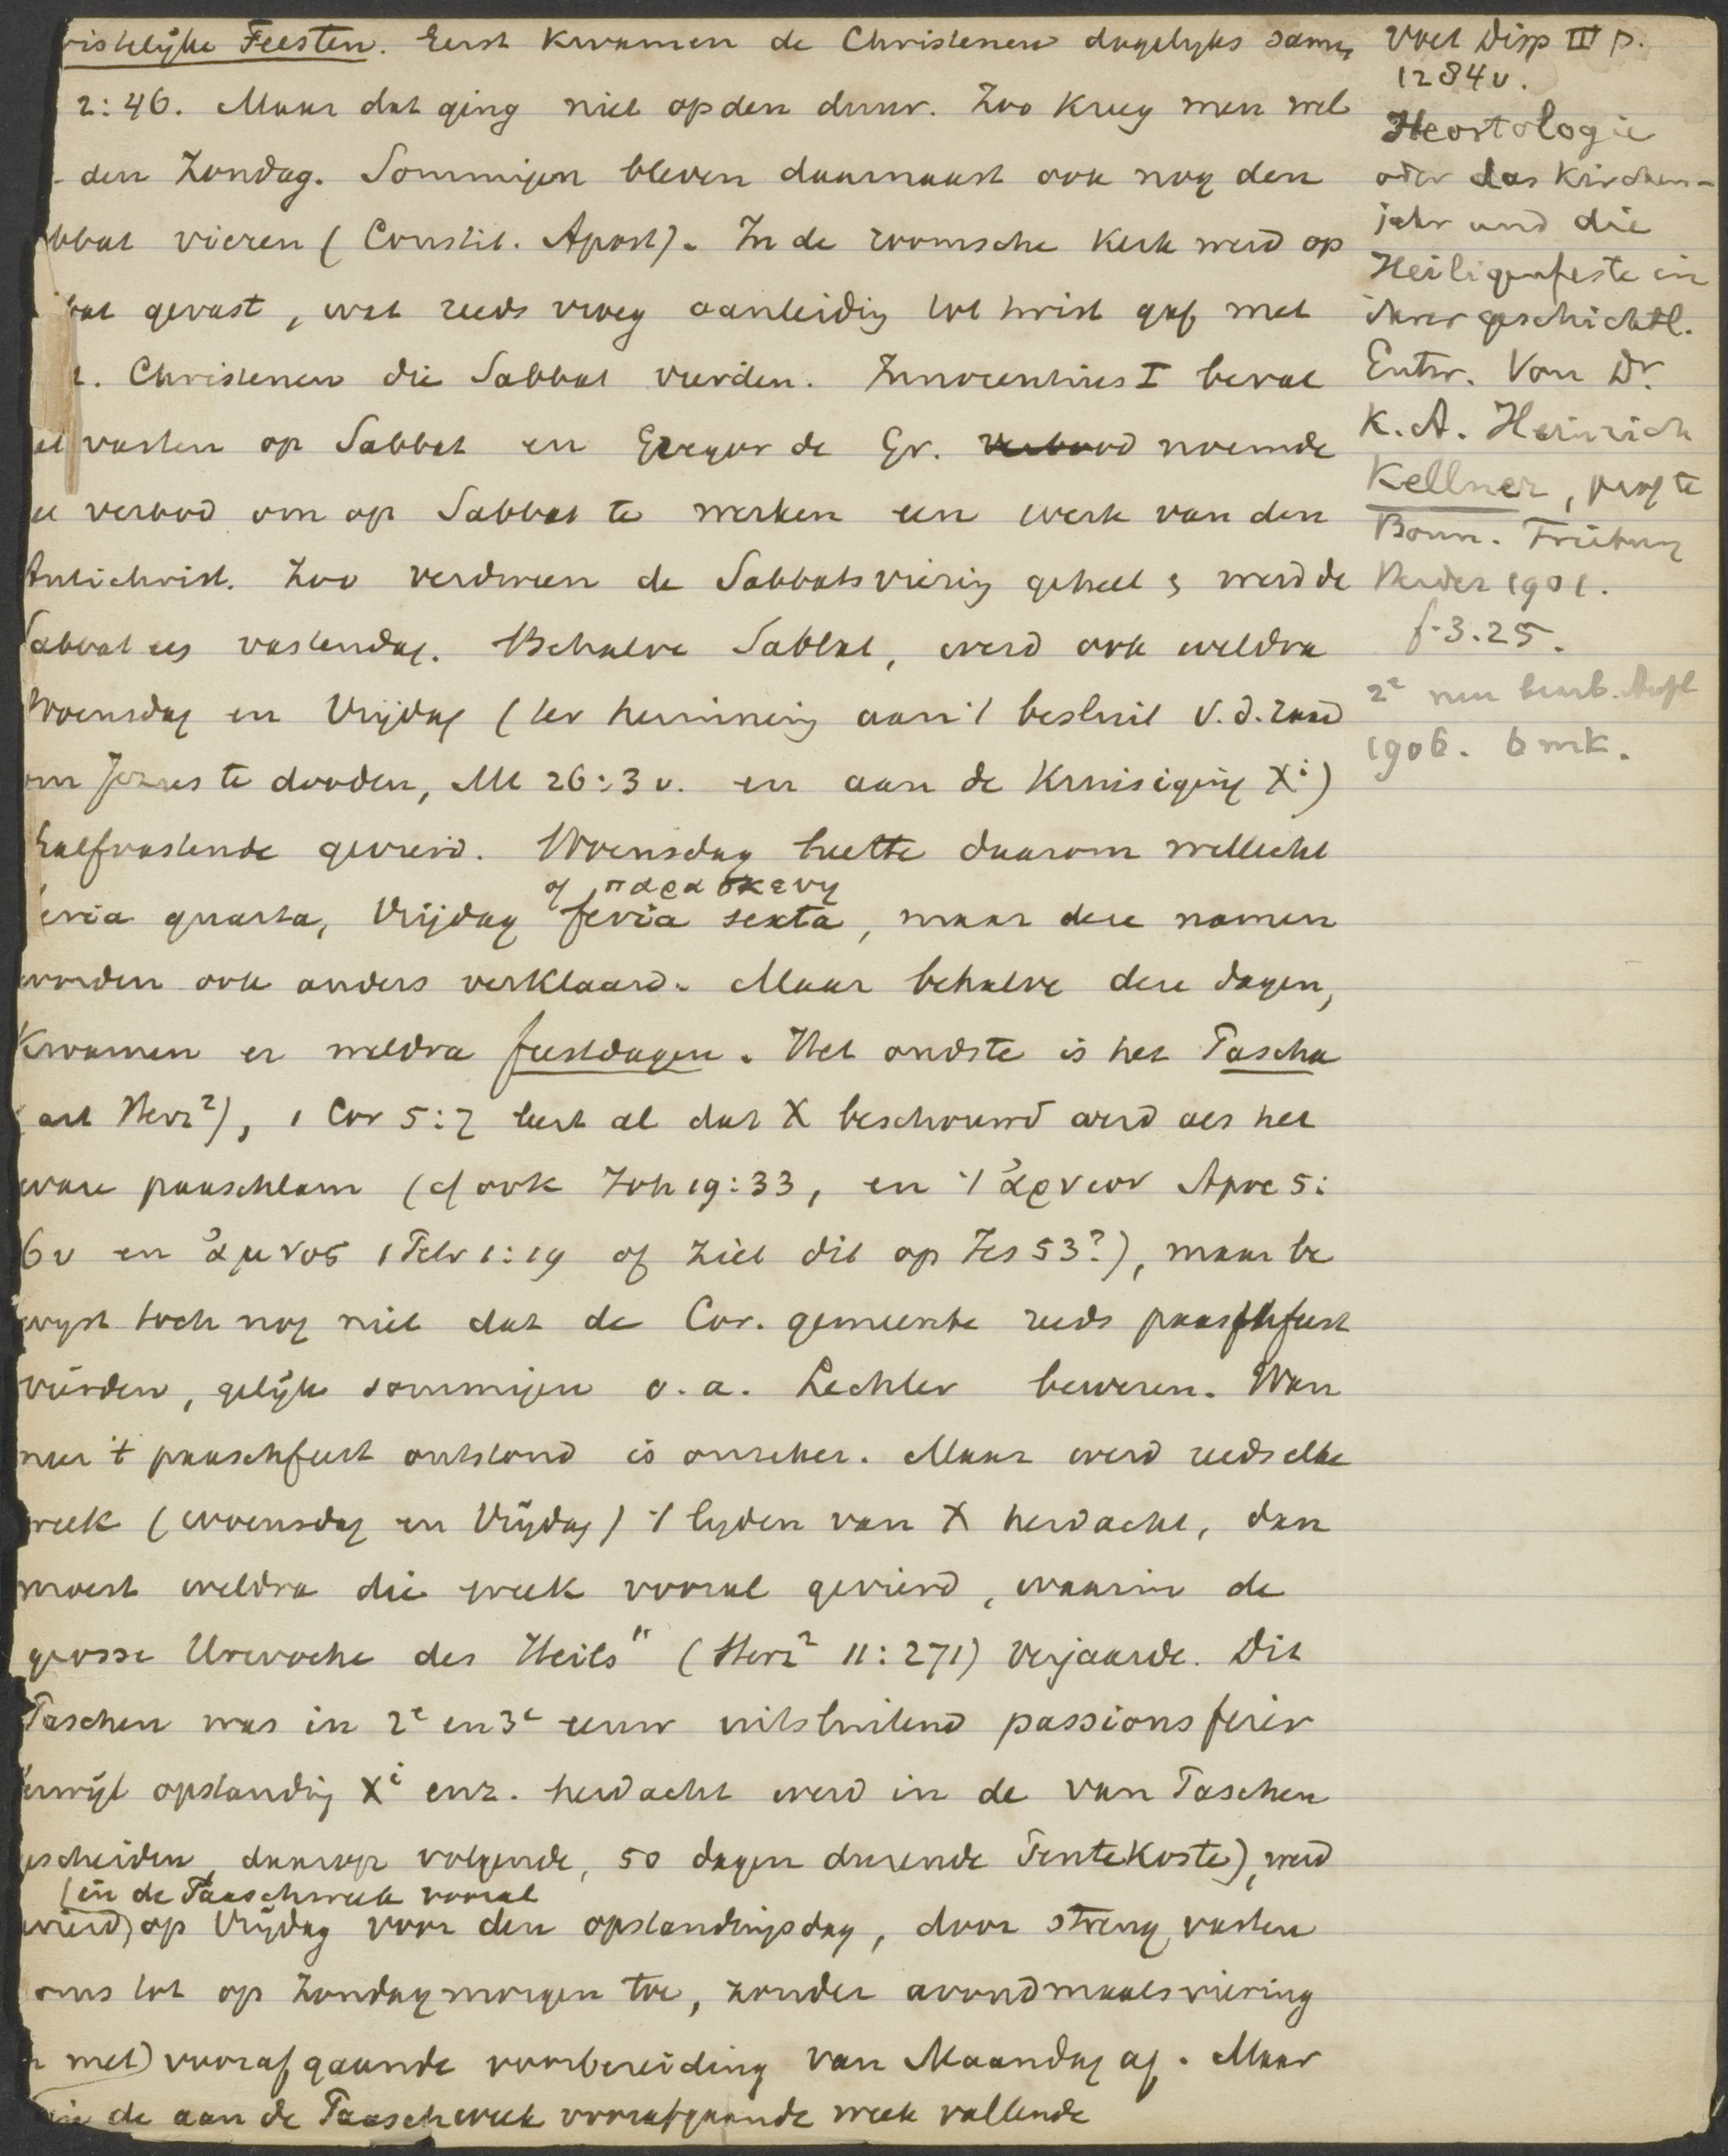 ristelijke Feesten. Eerst kwamen de Christenen dagelyks samen
2:46. Maar dat ging niet op den duur. Zoo kreeg men wel
den Zondag. Sommigen bleven daarnaast ook nog den
bbat vieren (Constit. Apost). In de roomsche kerk werd op
bat gevast, wat reeds vroeg aanleiding tot twist gaf met
. Christenen die Sabbat vierden. Innocentius I beval
et vasten op Sabbat en Gregor de Gr. verbood noemde
et verbod om op Sabbat te werken een werk van den
Antichrist. Zoo verdween de Sabbatsviering geheel & werd de
Sabbat als vastendag. Behalve Sabbat, werd ook weldra
Woensdag en Vrijdag (ter herinnering aan 't besluit v.d. raad
om Jezus te dooden, Mt 26:3 v. en aan de Kruisiging Xi)
halfvastende gevierd. Woensdag heette daarom wellicht
of παρασκευη
feria quarta, Vrijdag feria sexta, maar deze namen
worden ook anders verklaard. Maar behalve deze dagen,
Kwamen er weldra feestdagen. Het oudste is het Pascha
(art Herz²), 1 Cor 5:7 leert al dat X beschouwd werd als het
ware paaschlam (cf ook Joh 19:33, en 't ἀρνιον Apoc 5:
6 v en ἀμνος 1 Petr 1:19 of ziet dit op Jes 53?), maar be
wyst toch nog niet dat de Cor. gemeente reeds paaschfeest
vierden, gelijk sommigen o.a. Lechler beweren. Wan
neer 't paaschfeest ontstond is onzeker. Maar werd reeds elke
week (woensdag en Vrijdag) 't lyden van X herdacht, dan
moest weldra die week vooral gevierd, waarin de
grosse Urwoche des Heils" (Herz² 11:271) verjaarde. Dit
Paschen was in 2e en 3e eeuw uitsluitend passionsfeier
terwijl opstanding Xi enz. herdacht werd in de van Paschen
gescheiden, daarop volgende, 50 dagen durende Pentekoste), werd
(in de Paaschweek vooral
gevierd) op Vrijdag voor den opstandingsdag, door streng vasten
soms tot op Zondagmorgen toe, zonder avondmaalsviering
met) voorafgaande voorbereiding van Maandag af. Maar
in de aan de Paaschweek voorafgaande week vallende
Voet Disp III p.
1284 v.
Heortologie
oder das Kirchen-
jahr und die
Heiligenfeste in
ihrer geschichtl.
Entw. Von Dr.
K. A. Heinrich
Kellner, prof te
Bonn. Freiburg
Herder 1901.
f. 3.25.
2e neu bearb. Aufl
1906. 6 mk.